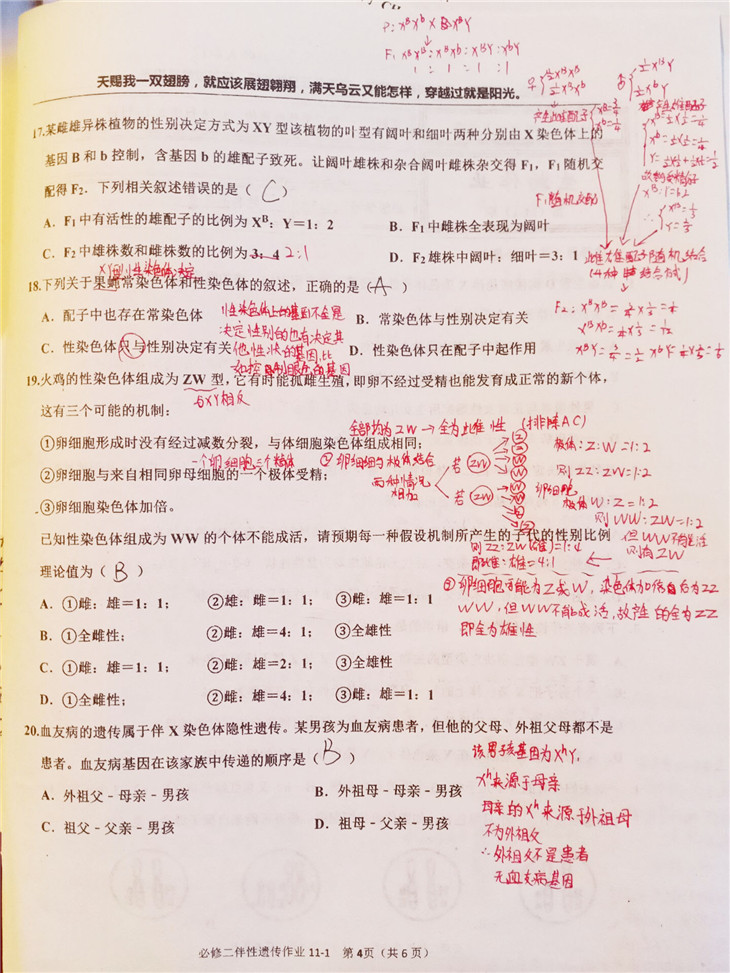 P: XᴮXᵇ × XᴮY
F₁ XᴮXᴮ : XᴮXᵇ : XᴮY : XᵇY
1 : 1 : 1 : 1
天赐我一双翅膀，就应该展翅翱翔，满天乌云又能怎样，穿越过就是阳光。
♀ ½XᴮXᴮ
½XᴮXᵇ
♂ ½XᴮY
½XᵇY
17.某雌雄异株植物的性别决定方式为 XY 型该植物的叶型有阔叶和细叶两种分别由 X 染色体上的
基因 B 和 b 控制，含基因 b 的雄配子致死。让阔叶雌株和杂合阔叶雌株杂交得 F₁，F₁ 随机交
配得 F₂．下列相关叙述错误的是（ C ）
F₁随机交配
A．F₁ 中有活性的雄配子的比例为 Xᴮ：Y＝1：2
B．F₁ 中雌株全表现为阔叶
C．F₂ 中雌株数和雄株数的比例为 3：4 2:1
D．F₂ 雄株中阔叶：细叶＝3：1
18.下列关于果蝇常染色体和性染色体的叙述，正确的是（ A ）
A．配子中也存在常染色体
B．常染色体与性别决定有关
C．性染色体只与性别决定有关
D．性染色体只在配子中起作用
性染色体上的基因不全是
决定性别的也有决定其
他性状的基因,比
如控制眼色的基因
19.火鸡的性染色体组成为 ZW 型，它有时能孤雌生殖，即卵不经过受精也能发育成正常的新个体，
与XY相反
这有三个可能的机制：
全部均为ZW→全为雌性 (排除AC)
①卵细胞形成时没有经过减数分裂，与体细胞染色体组成相同；
极体: Z:W=1:2
②卵细胞与来自相同卵母细胞的一个极体受精；
② 卵细胞与极体结合
两种情况
相加
若 ZW
则 ZZ:ZW=1:2
若 ZW
卵细胞
极体W:Z=1:2
则WW:ZW=1:2
③卵细胞染色体加倍。
已知性染色体组成为 WW 的个体不能成活，请预期每一种假设机制所产生的子代的性别比例
但WW不能成活
则ZZ:ZW(雌)=1:4
即雌:雄=4:1
理论值为（ B ）
③ 卵细胞可能为Z或W，染色体加倍后为ZZ
WW，但WW不能成活,故产生的全为ZZ
即全为雄性
A．①雌：雄＝1：1； ②雄：雌＝1：1； ③雌：雄＝1：1
B．①全雌性； ②雌：雄＝4：1； ③全雄性
C．①雌：雄＝1：1； ②雌：雄＝2：1； ③全雄性
D．①全雌性； ②雌：雄＝4：1； ③雌：雄＝1：1
20.血友病的遗传属于伴 X 染色体隐性遗传。某男孩为血友病患者，但他的父母、外祖父母都不是
患者。血友病基因在该家族中传递的顺序是（ B ）
A．外祖父－母亲－男孩
B．外祖母－母亲－男孩
C．祖父－父亲－男孩
D．祖母－父亲－男孩
该男孩基因为XʰY,
Xʰ来源于母亲
母亲的Xʰ来源于外祖母
不为外祖父
∴外祖父不是患者
无血友病基因
必修二伴性遗传作业 11-1 第4页（共 6 页）